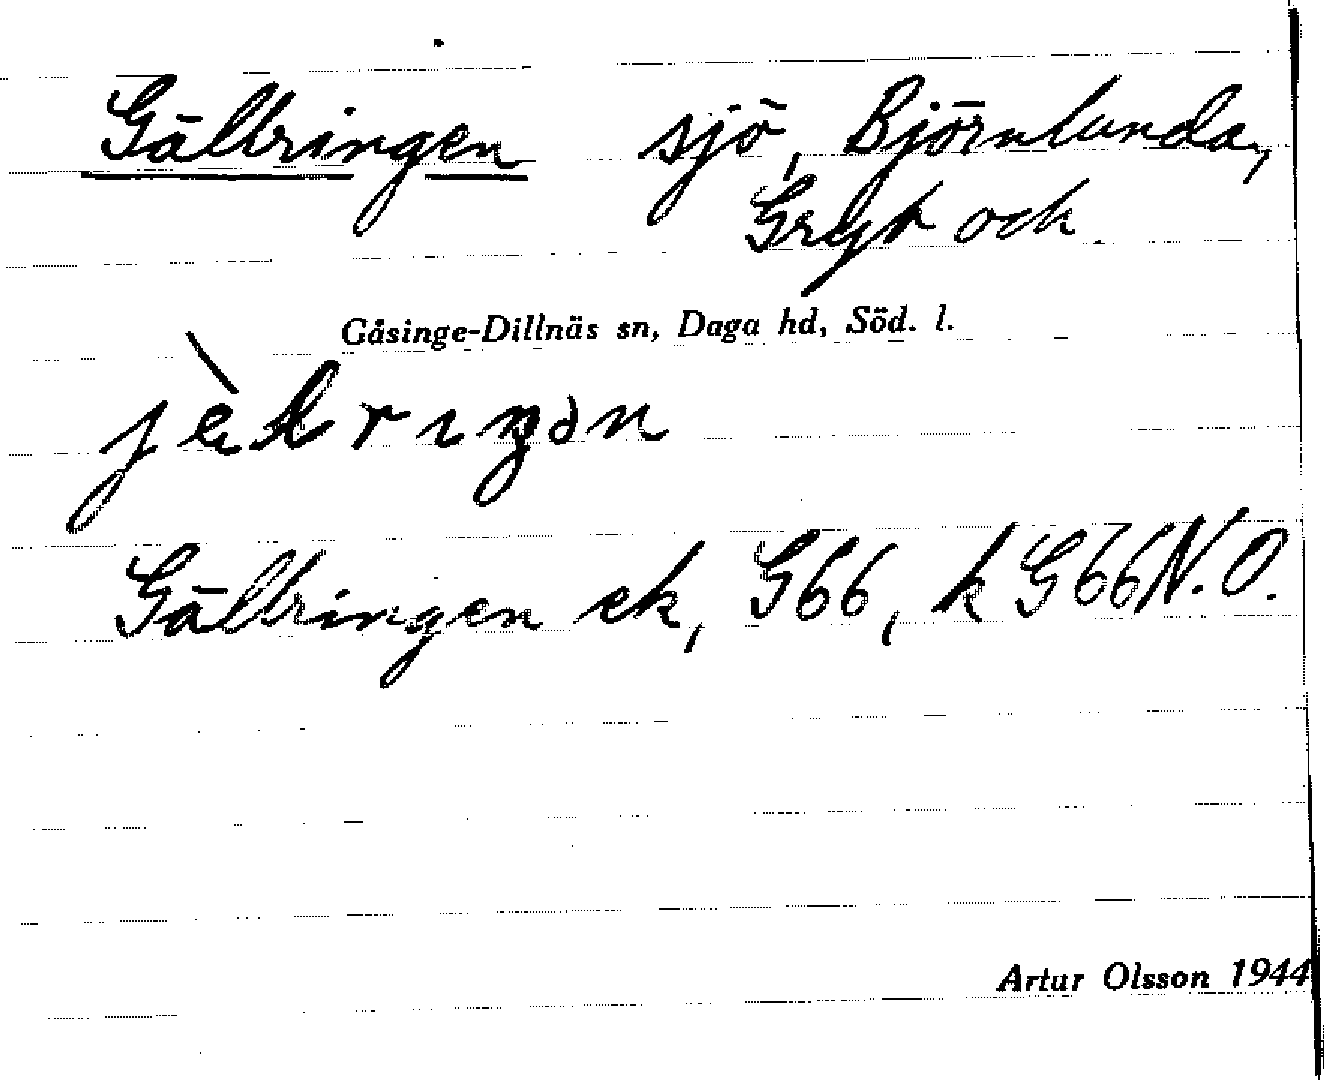 Gälbringen sjö, Björnlunda,
Gryt och
Gåsinge-Dillnäs sn, Daga hd, Söd. l.
Gälbringen ek, G66, k G66 N.O.
Artur Olsson 1944